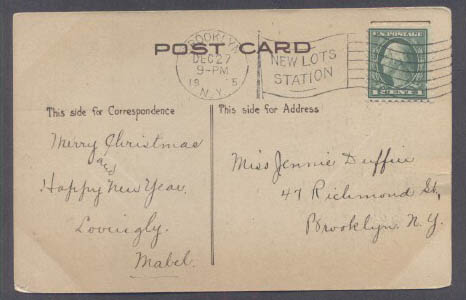 POST CARD
BROOKLYN
DEC 27
9-PM
19 5
N.Y.
NEW LOTS
STATION
U.S. POSTAGE
1 CENT 1
This side for Correspondence
Merry Christmas
and
Happy New Year.
Lovingly.
Mabel.
This side for Address
Miss Jennie Duffie
47 Richmond St,
Brooklyn N.Y.